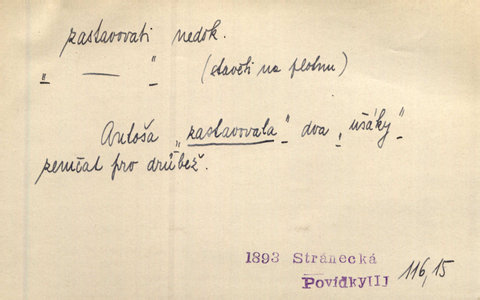 zastavovati nedok.
„ — " (stavěti na plotnu)
Antoša „zastavovala" dva „ušáky"
zemčat pro drůbež.
1893 Stránecká
Povídky[I] 116,15